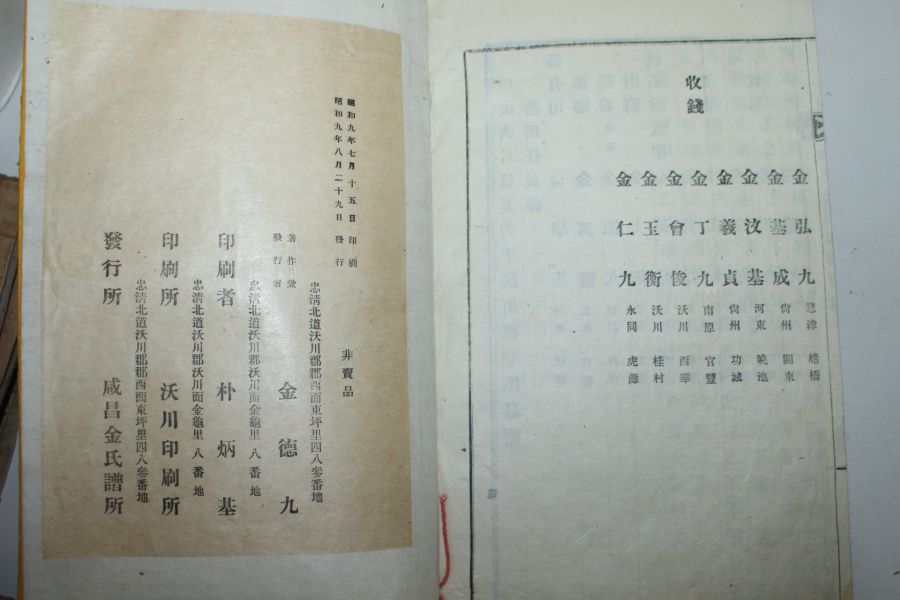 收錢
金弘九 恩津 橋
金基成 尙州 關東
金汶基 河東 晩池
金義貞 尙州 功城
金丁九 南原 官豐
金會俊 沃川 西華
金玉衡 沃川 桂村
金仁九 永同 虎灘
昭和九年七月十五日 印刷
昭和九年八月二十九日 發行
非賣品
忠淸北道沃川郡郡西面東坪里四八參番地
著作兼發行者 金德九
忠淸北道沃川郡沃川面金龜里八番地
印刷者 朴炳基
忠淸北道沃川郡沃川面金龜里八番地
印刷所 沃川印刷所
忠淸北道沃川郡郡西面東坪里四八參番地
發行所 咸昌金氏譜所